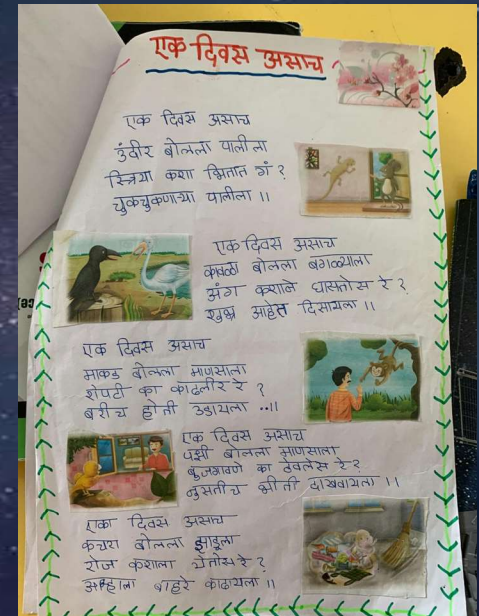 एक दिवस असाच
एक दिवस असाच
उंदीर बोलला पालीला
स्त्रिया कशा भितात गं ?
चुकचुकणाऱ्या पालीला ।।
एक दिवस असाच
कावळा बोलला बगळ्याला
अंग कशाने घासतोस रे ?
शुभ्र आहेत दिसायला ।।
एक दिवस असाच
माकड बोलला माणसाला
शेपटी का काढलीर रे ?
बरीच होती उडायला ..।।
एक दिवस असाच
पक्षी बोलला माणसाला
बुजगावणे का ठेवलेस रे ?
नुसतीच भीती दाखवायला ।।
एका दिवस असाच
कचरा बोलला झाडूला
रोज कशाला येतोस रे ?
आम्हाला बाहेर काढायला ।।